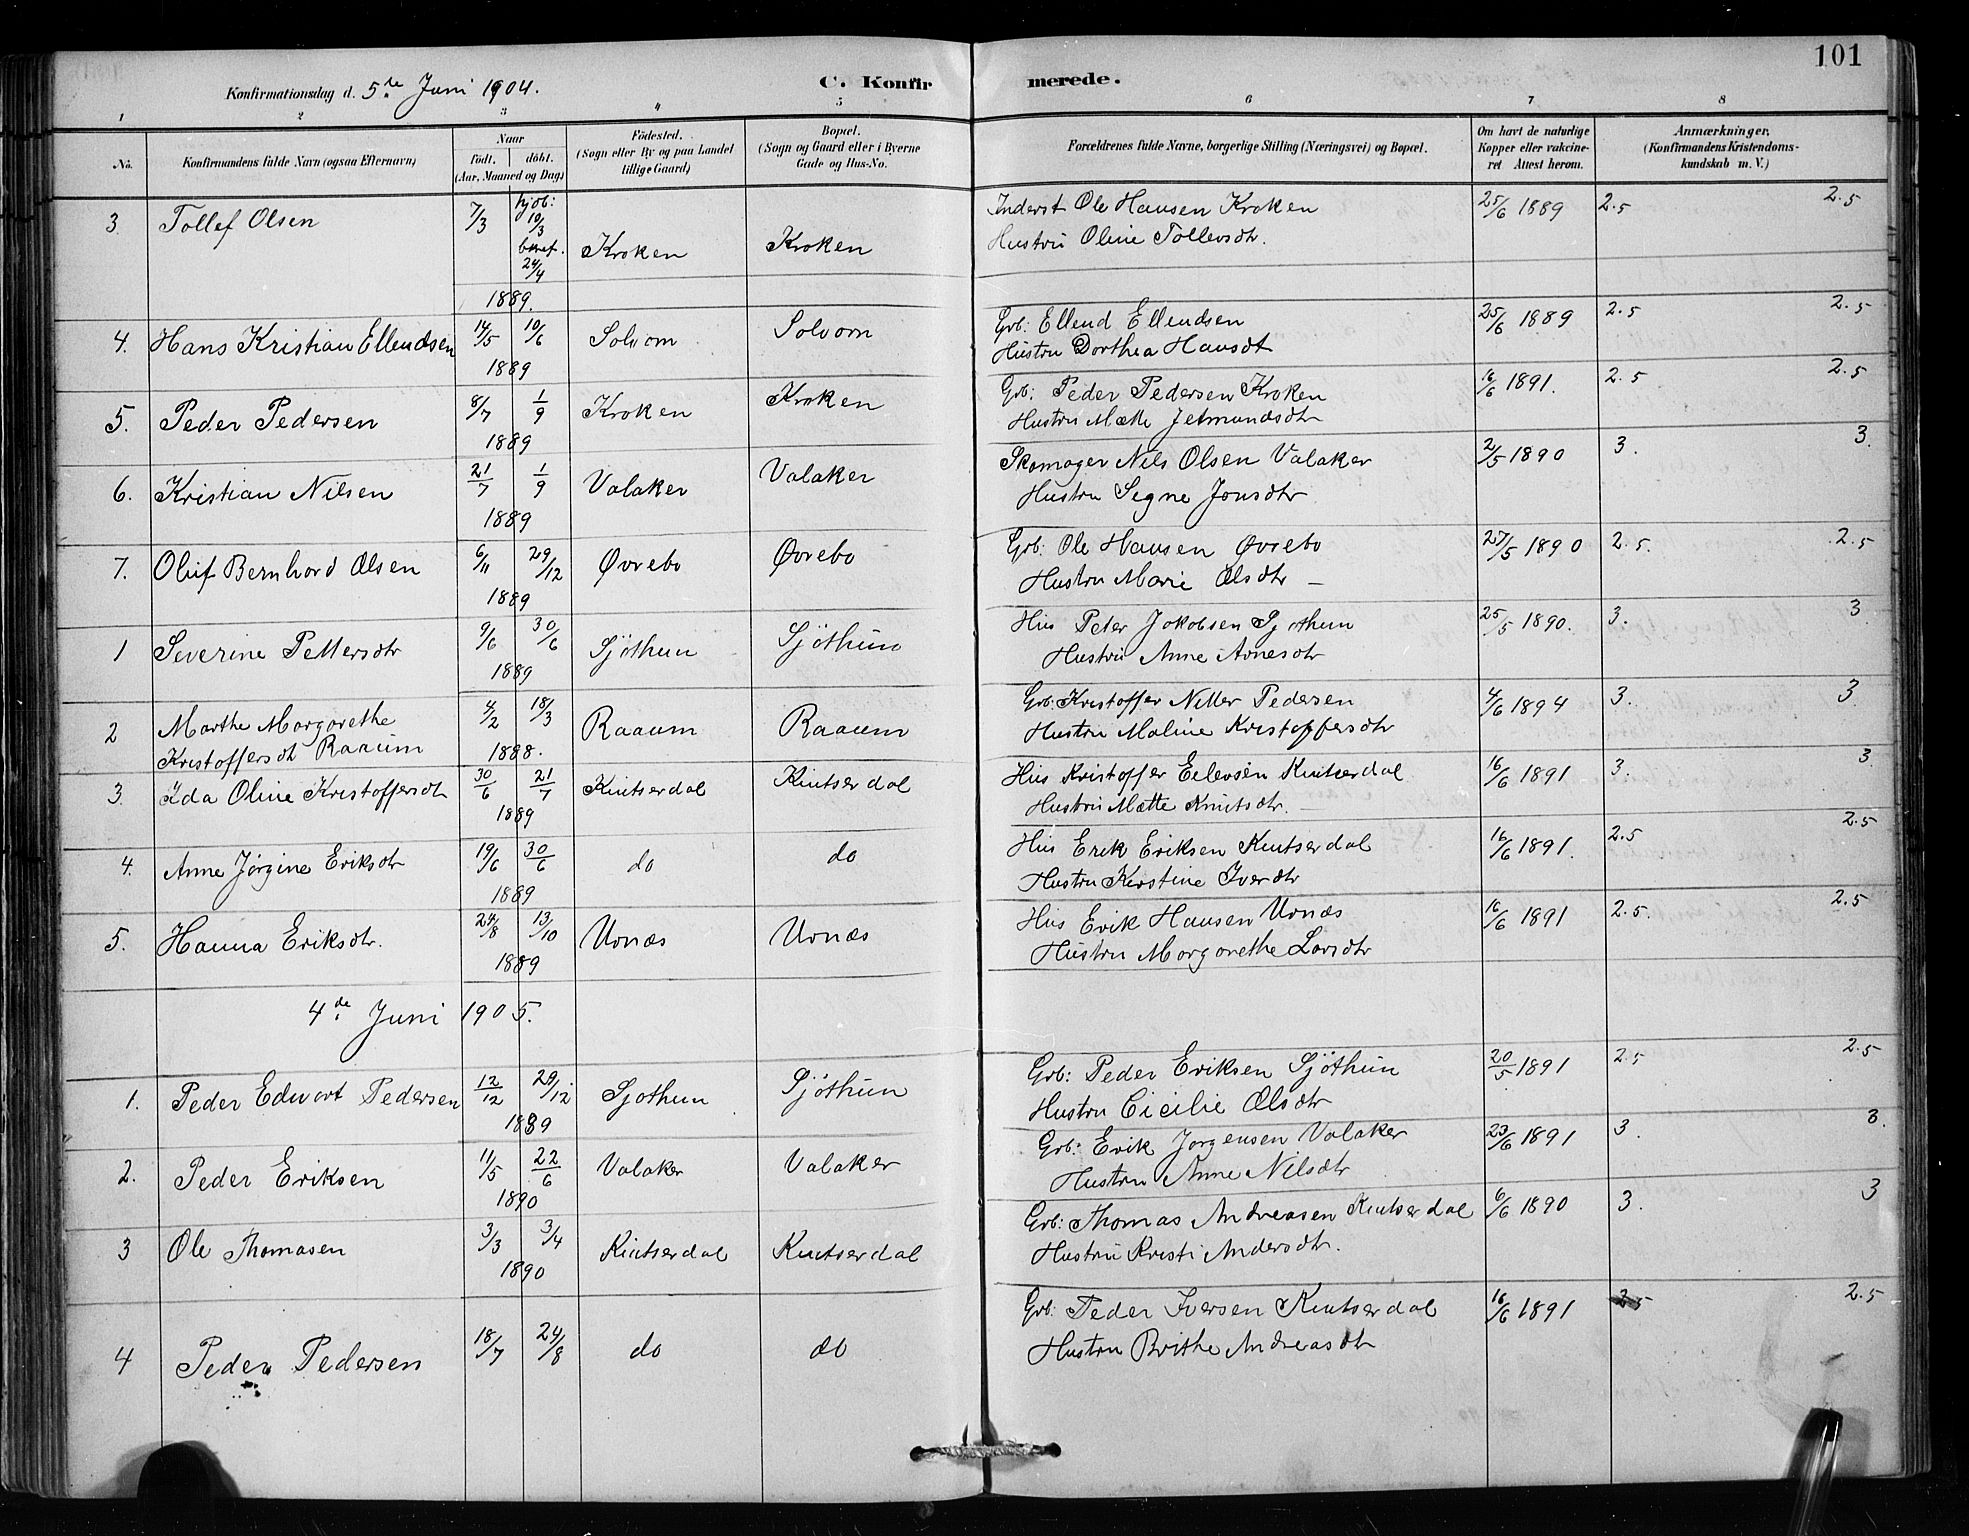 101
Konfirmationsdag d. 5te Juni 1904.
C. Konfirmerede.
1 2 3 4 5 6 7 8
No. Konfirmandens fulde Navn (ogsaa Efternavn) Naar födt. döbt. (Aar, Maaned og Dag) Födested. (Sogn eller By og paa Landet tillige Gaard) Bopæl. (Sogn og Gaard eller i Byerne Gade og Hus-No. Forældrenes fulde Navne, borgerlige Stilling (Næringsvei) og Bopæl. Om havt de naturlige Kopper eller vakcineret Attest herom. Anmærkninger, (Konfirmandens Kristendomskundskab m. V.)
3. Tollef Olsen 7/3 hjdb: 10/3 24/4 Kroken Kroken Inderst Ole Hansen Kroken 25/6 1889 2.5 2.5
Hustru Oline Tollevsdtr.
1889.
4. Hans Kristian Ellendsen 14/5 10/6 Solvorn Solvorn Grb: Ellend Ellendsen 25/6 1889 2.5 2.5
Hustru Dorthea Hansdt
1889
5. Peder Pedersen 8/7 1/9 Kroken Kroken Grb: Peder Pedersen Kroken 16/6 1891. 2.5 2.5
Hustru Mætte Jetmundsdtr
1889
6. Kristian Nilsen 21/7 1/9 Valaker Valaker Skomager Nils Olsen Valaker 2/5 1890 3. 3.
Hustru Segne Jonsdtr
1889
7. Oluf Bernhard Olsen 6/11 29/12 Øvrebo Øvrebo Grb: Ole Hansen Øvrebo 27/5 1890 2.5. 2.5
Hustru Marie Olsdtr —
1889
1 Severine Pettersdtr 9/6 30/6 Sjöthun Sjöthun Hus Peter Jakobsen Sjøthun 25/5 1890. 3. 3
Hustru Anne Arnesdtr
1889
2 Marthe Margarethe Kristoffersdt Raaum 4/2 18/3 Raaum Raaum Grb: Kristoffer Nitter Pedersen 4/6 1894 3. 3
Hustru Maline Kristoffersdtr
1888.
3. Ida Oline Kristoffersdt 30/6 21/7 Kintserdal Kintserdal Hus Kristoffer Eilevsen Kintserdal 16/6 1891 3. 3.
Hustru Mætte Knutsdtr. —
1889
4. Anne Jørgine Eriksdtr 19/6 30/6 do do Hus Erik Eriksen Kintserdal 16/6 1891. 2.5 2.5
Hustru Kirstine Iverdtr
1889
5. Hanna Eriksdtr. 24/8 13/10 Urnæs Urnæs Hus Erik Hansen Urnæs 16/6 1891 2.5. 2.5
Hustru Margarethe Larsdtr
1889
4de Juni 1905.
1. Peder Edvart Pedersen 12/12 29/12 Sjøthun Sjöthun Grb: Peder Eriksen Sjöthun 20/5 1891 2.5 2.5
Hustru Cicilie Olsdtr
1889
2. Peder Eriksen 11/5 22/6 Valaker Valaker Grb: Erik Jørgensen Valaker 23/6 1891 3. 3.
Hustru Anne Nilsdtr
1890
3 Ole Thomasen 3/3 3/4 Kintserdal Kintserdal Grb: Thomas Andreasen Kintserdal 6/6 1890 3. 3
Hustru Kristi Andersdtr.
1890
4 Peder Pedersen 18/7 24/8 do do Grb: Peder Iversen Kintserdal 16/6 1891 2.5 2.5
Hustru Brithe Andreasdtr